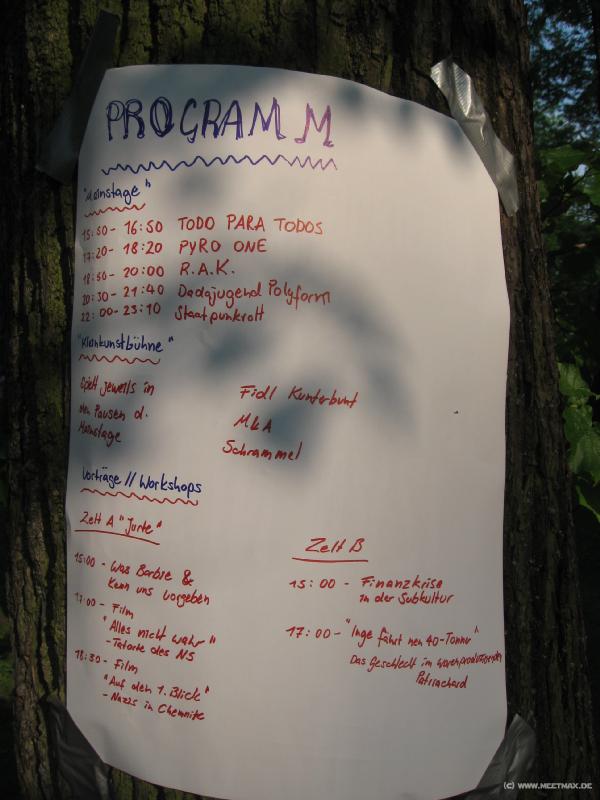 PROGRAMM
"Mainstage"
15:50 - 16:50 TODO PARA TODOS
17:20 - 18:20 PYRO ONE
18:50 - 20:00 R.A.K.
20:30 - 21:40 Dadajugend Polyform
22:00 - 23:10 Staatpunkrott
"Kleinkunstbühne"
Spielt jeweils in
den Pausen d.
Mainstage
Fidl Kunterbunt
MkA
Schrammel
Vorträge // Workshops
Zelt A "Jurte"
15:00 - Was Barbie &
Kenn uns vorgeben
17:00 - Film
"Alles nicht wahr"
- Tatorte des NS
18:30 - Film
"Auf den 1. Blick"
- Nazis in Chemnitz
Zelt B
15:00 - Finanzkrise
in der Subkultur
17:00 - "Inge fährt nen 40-Tonner"
Das Geschlecht im warenproduzierenden
Patriachard
(C) WWW.MEETMAX.DE